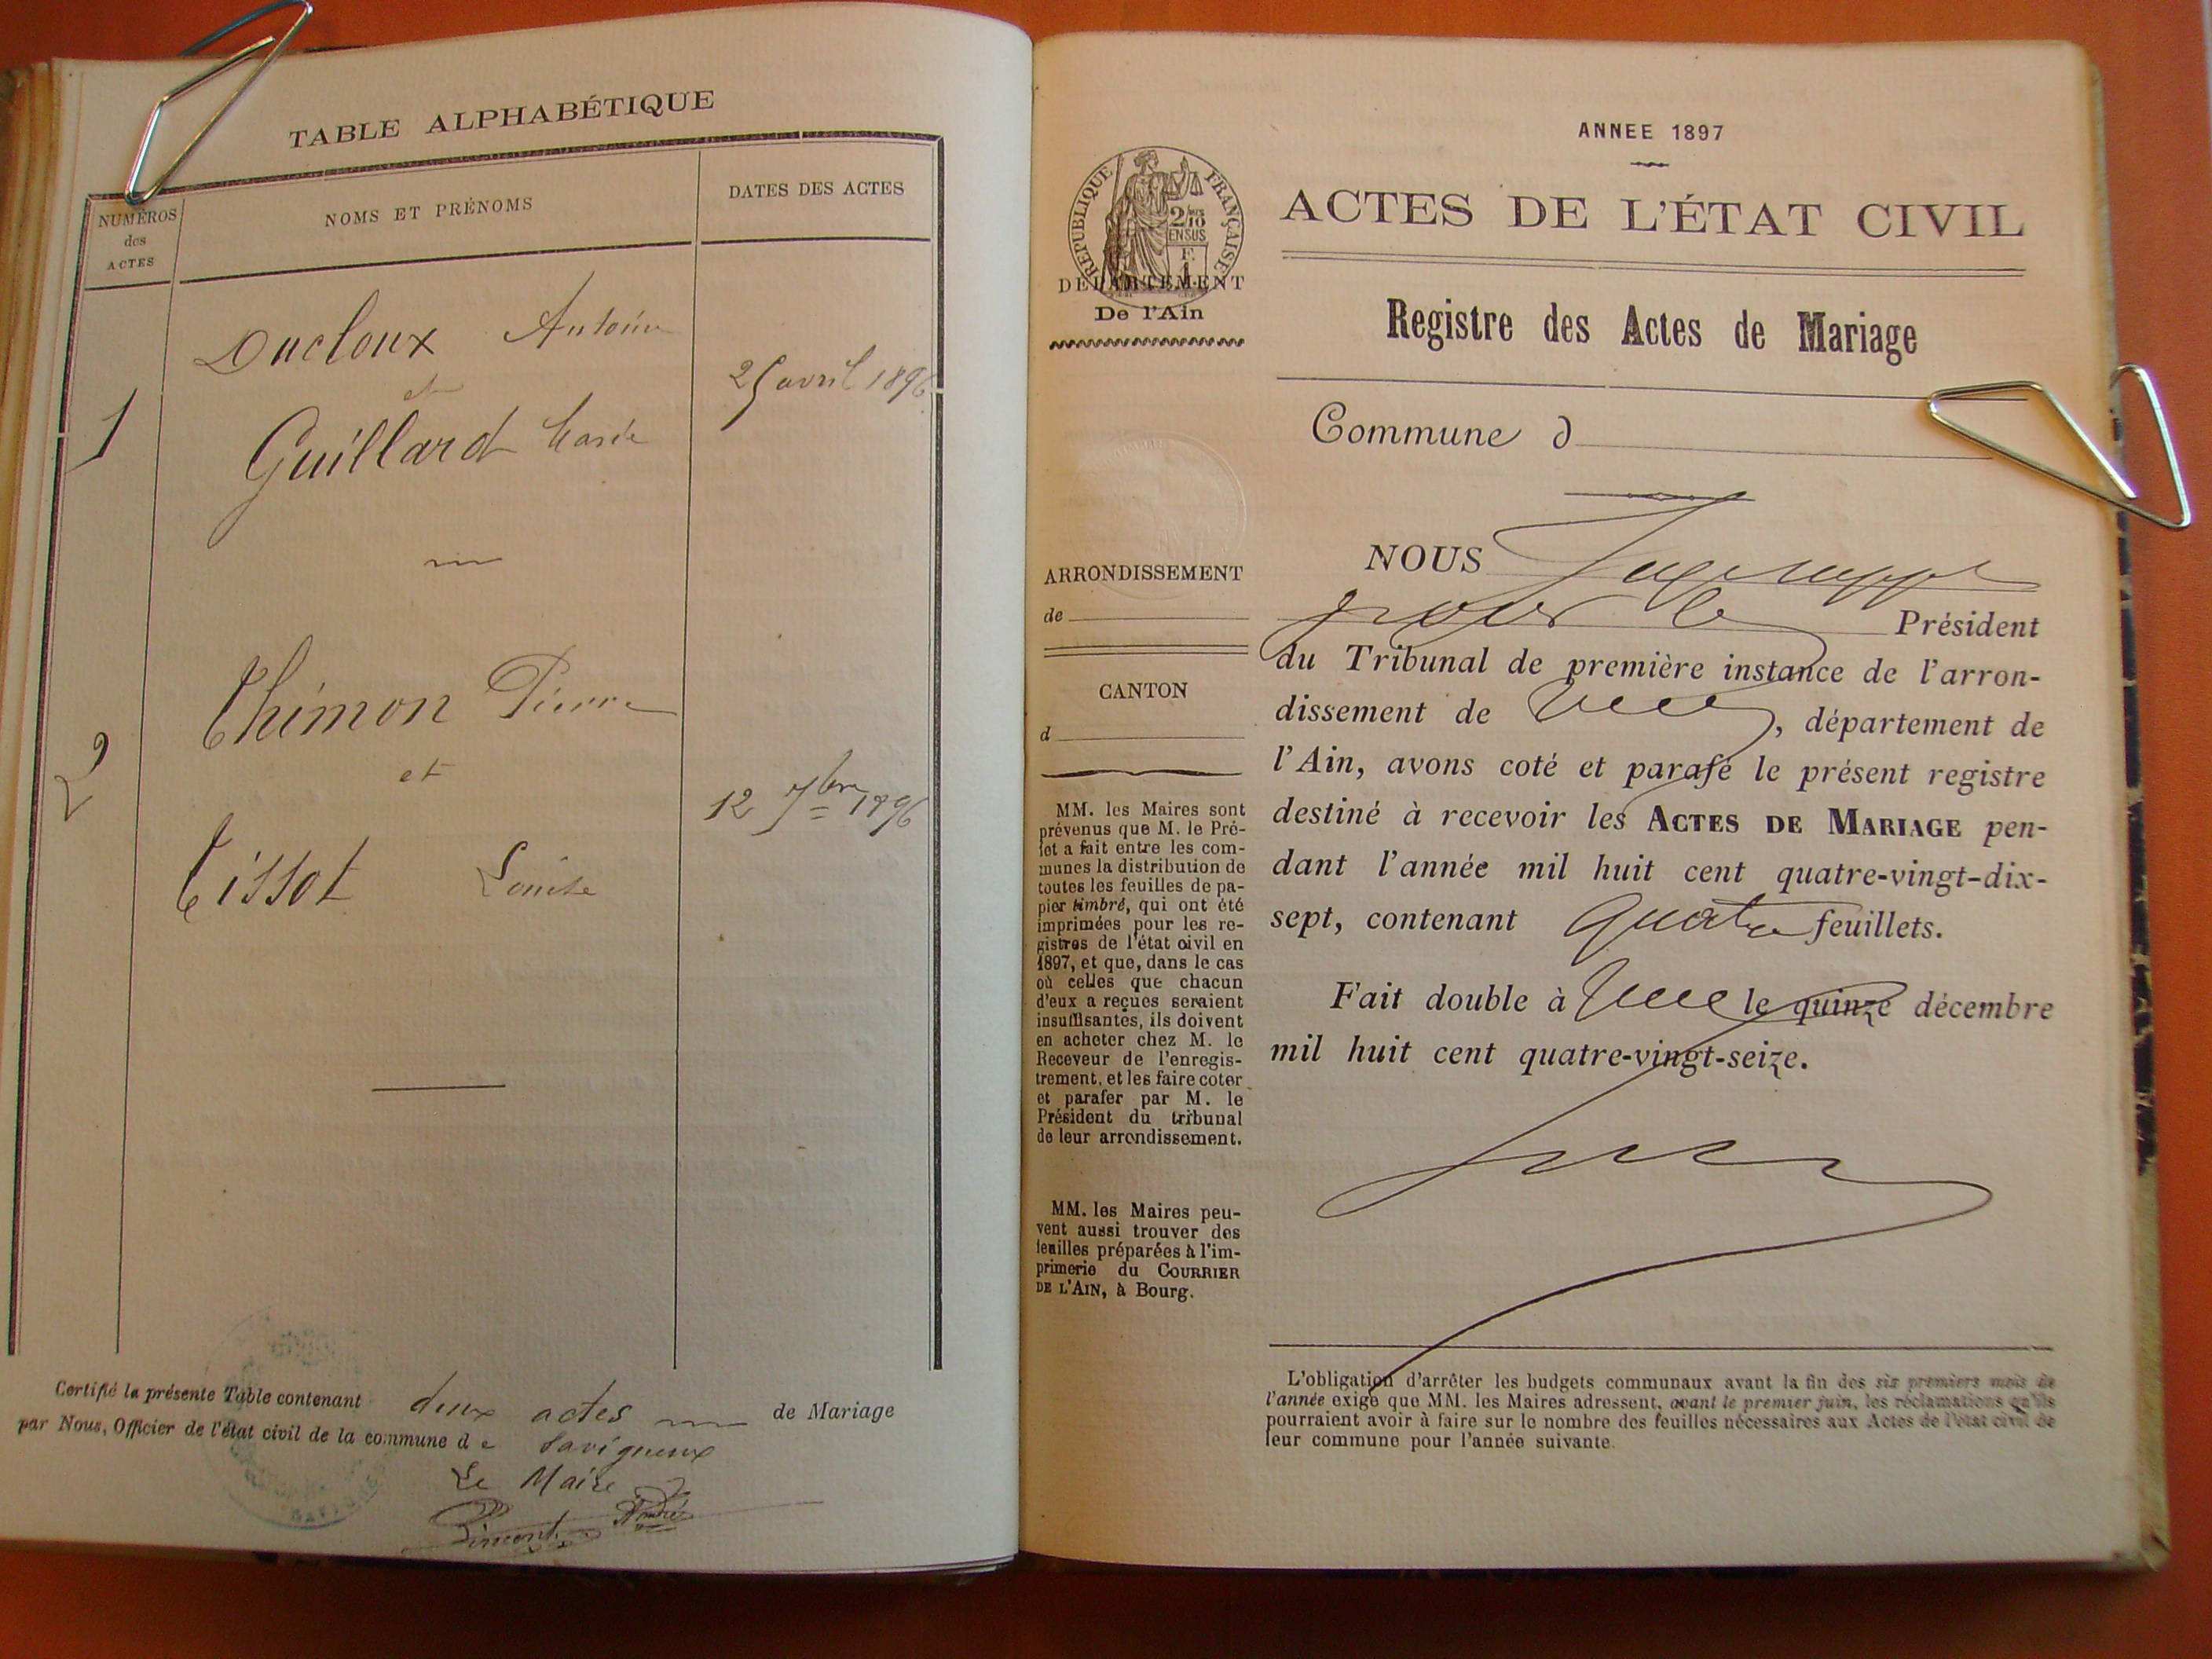 TABLE ALPHABÉTIQUE
NUMÉROS
des
ACTES
NOMS ET PRÉNOMS
DATES DES ACTES
Ducloux Antoine
et
1
25 avril 1896
Guillard Marie
Thimon Pierre
2
et
12 7bre 1896
Tissot Louise
Certifié la présente Table contenant deux actes de Mariage
par Nous, Officier de l'état civil de la commune de Savigneux
Le Maire
ANNEE 1897
RÉPUBLIQUE FRANÇAISE
2/10
EN SUS
F.
1
ACTES DE L'ÉTAT CIVIL
DÉPARTEMENT
De l'Ain
Registre des Actes de Mariage
Commune d
ARRONDISSEMENT
de
CANTON
d
MM. les Maires sont
prévenus que M. le Pré-
fet a fait entre les com-
munes la distribution de
toutes les feuilles de pa-
pier timbré, qui ont été
imprimées pour les re-
gistres de l'état civil en
1897, et que, dans le cas
où celles que chacun
d'eux a reçues seraient
insuffisantes, ils doivent
en acheter chez M. le
Receveur de l'enregis-
trement, et les faire coter
et parafer par M. le
Président du tribunal
de leur arrondissement.
MM. les Maires peu-
vent aussi trouver des
feuilles préparées à l'im-
primerie du COURRIER
DE L'AIN, à Bourg.
NOUS
pour le Président
du Tribunal de première instance de l'arron-
dissement de , département de
l'Ain, avons coté et parafé le présent registre
destiné à recevoir les ACTES DE MARIAGE pen-
dant l'année mil huit cent quatre-vingt-dix-
sept, contenant quatre feuillets.
Fait double à le quinze décembre
mil huit cent quatre-vingt-seize.
L'obligation d'arrêter les budgets communaux avant la fin des six premiers mois de
l'année exige que MM. les Maires adressent, avant le premier juin, les réclamations qu'ils
pourraient avoir à faire sur le nombre des feuilles nécessaires aux Actes de l'état civil de
leur commune pour l'année suivante.